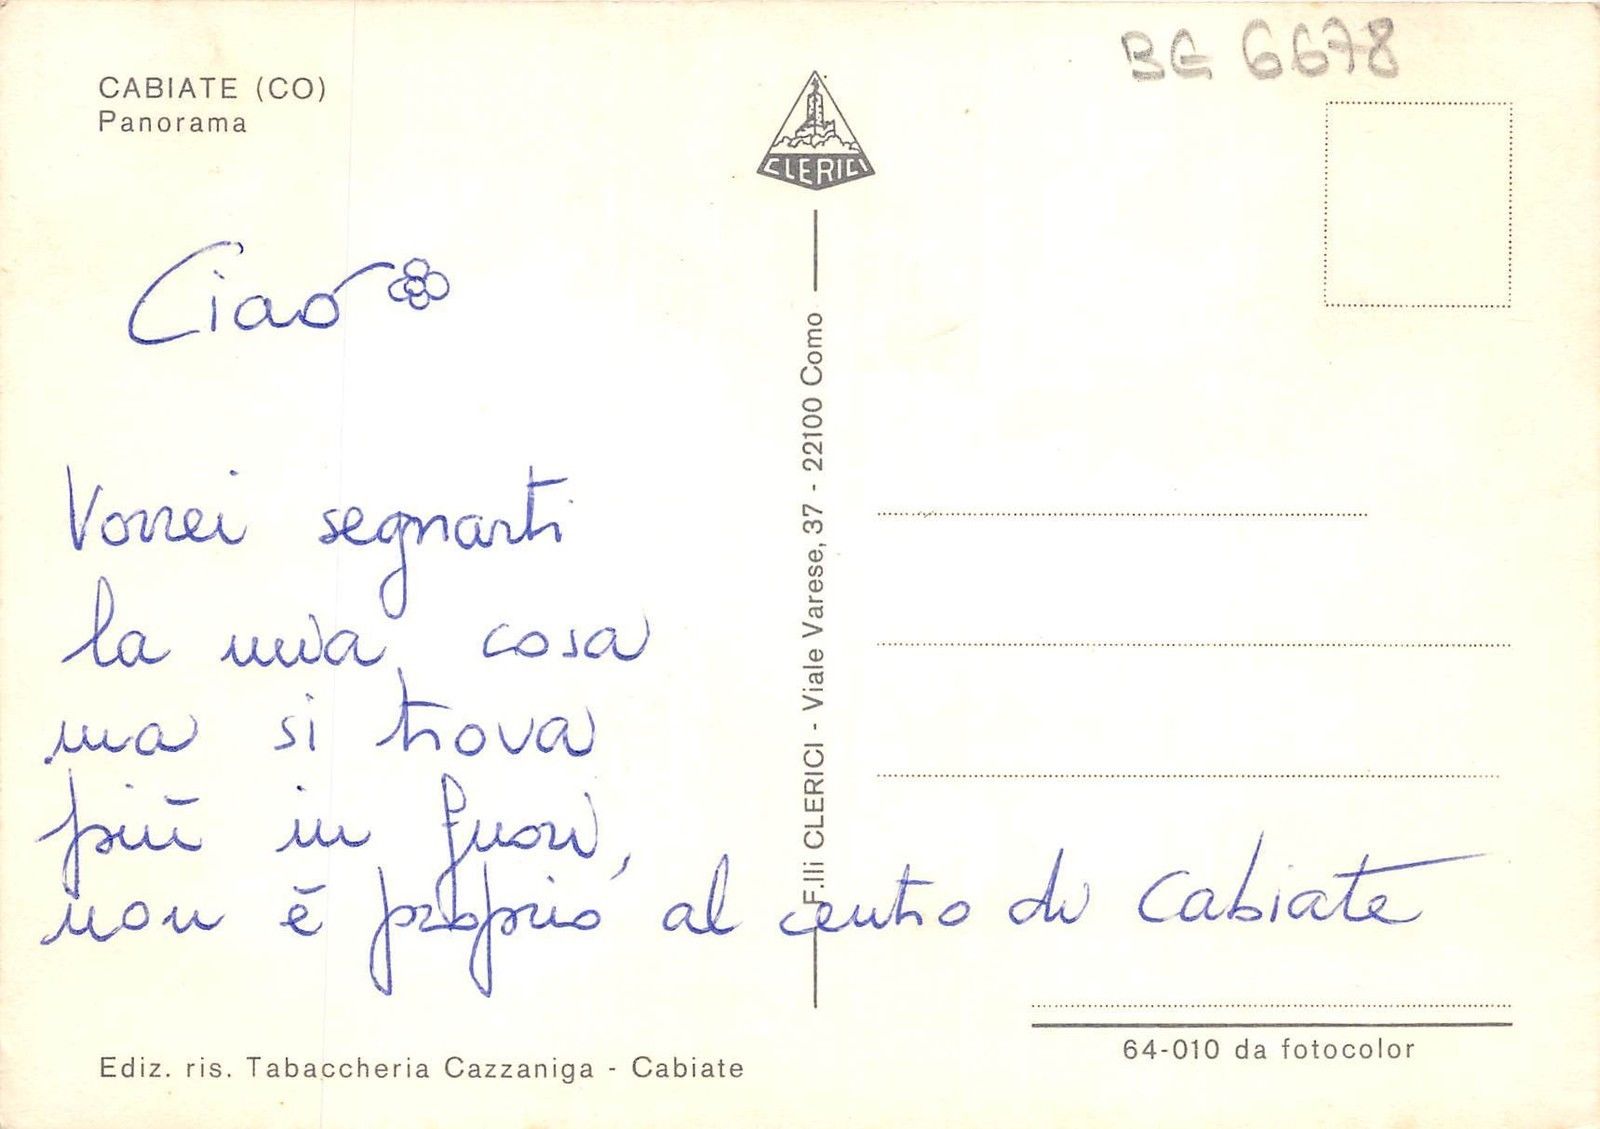 BG 6678
CABIATE (CO)
Panorama
CLERICI
Ciao
Vorrei segnarti
la mia cosa
ma si trova
più in fuori,
non è proprio al centro di Cabiate
F.lli CLERICI - Viale Varese, 37 - 22100 Como
Ediz. ris. Tabaccheria Cazzaniga - Cabiate
64-010 da fotocolor